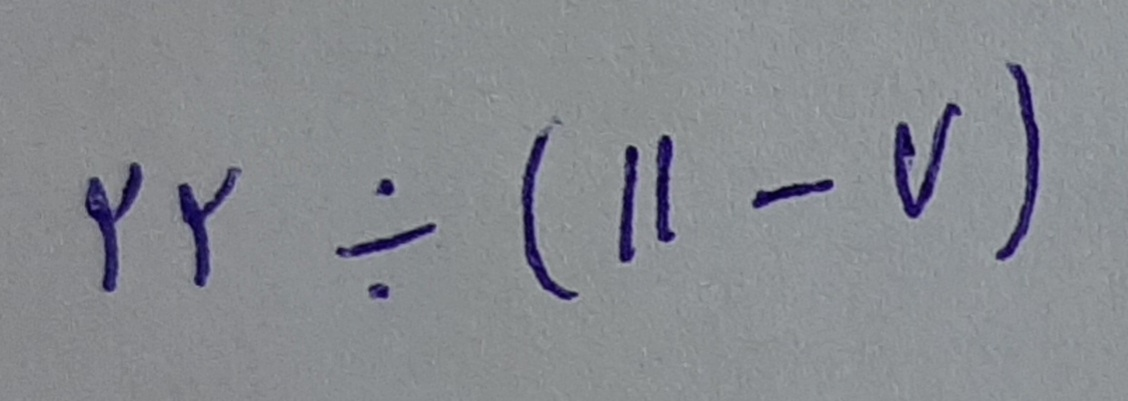 ۲۲ ÷ (۱۱ - ۷)